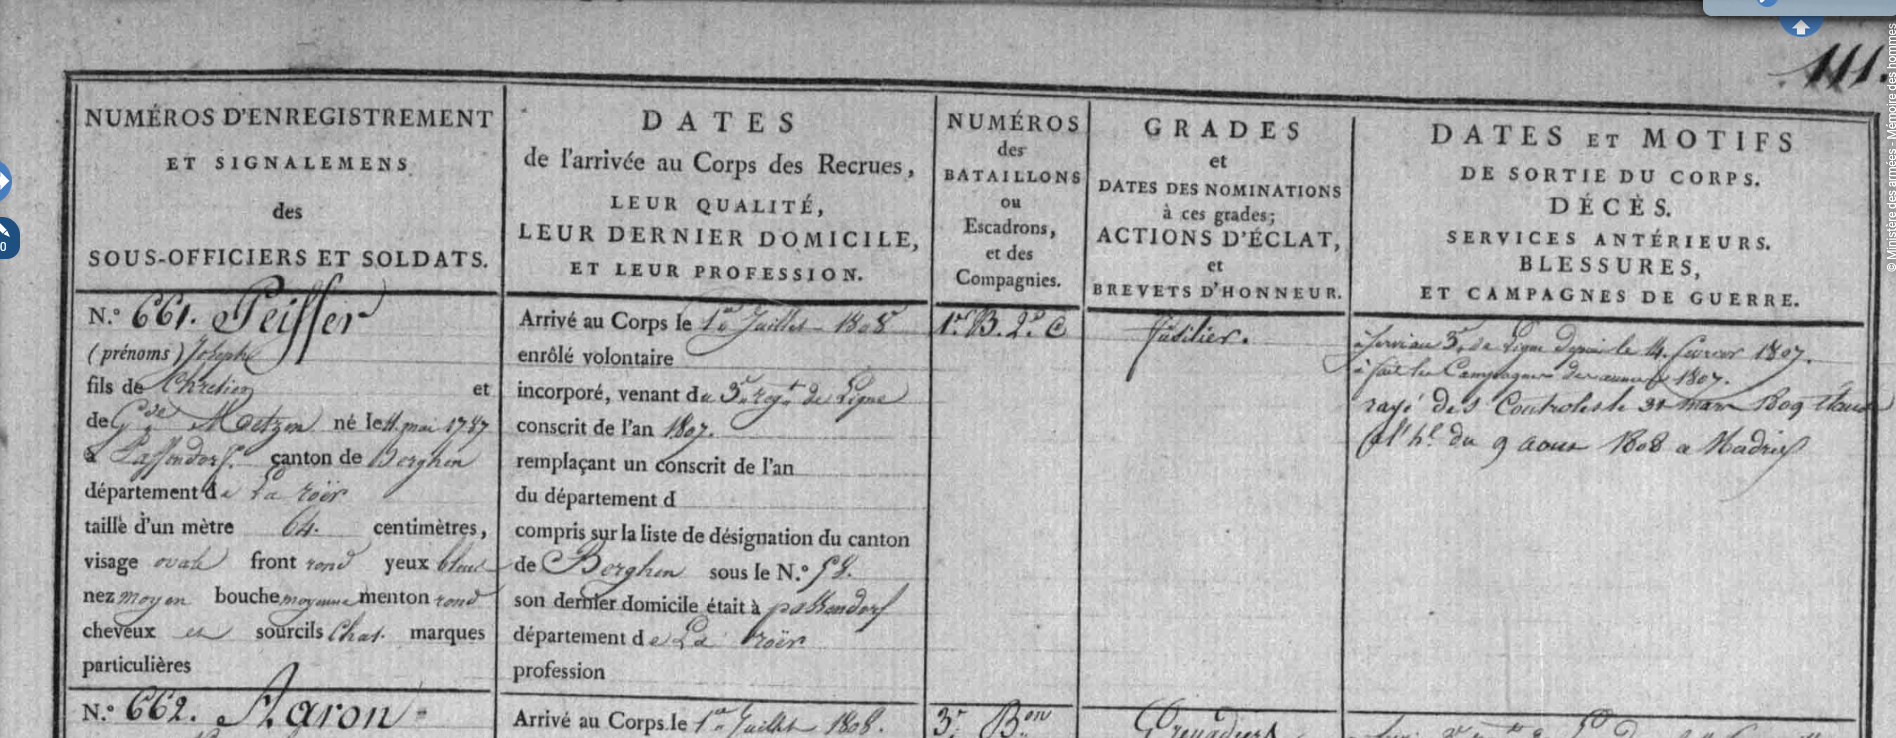 111.
NUMÉROS D'ENREGISTREMENT
ET SIGNALEMENS
des
SOUS-OFFICIERS ET SOLDATS.
DATES
de l'arrivée au Corps des Recrues,
LEUR QUALITÉ,
LEUR DERNIER DOMICILE,
ET LEUR PROFESSION.
NUMÉROS
des
BATAILLONS
ou
Escadrons,
et des
Compagnies.
GRADES
et
DATES DES NOMINATIONS
à ces grades;
ACTIONS D'ÉCLAT,
et
BREVETS D'HONNEUR.
DATES ET MOTIFS
DE SORTIE DU CORPS.
DÉCÈS.
SERVICES ANTÉRIEURS.
BLESSURES,
ET CAMPAGNES DE GUERRE.
N.° 661. Peiffer
(prénoms) Joseph
fils de Chretien et
de Metzen né le mai 1787
à canton de Berghen
département de La roër
taille d'un mètre 64. centimètres,
visage ovale front rond yeux bleus
nez moyen bouche moyenne menton rond
cheveux et sourcils Chat. marques
particulières
Arrivé au Corps le 1er Juillet 1808
enrôlé volontaire
incorporé, venant du 3e regt de Ligne
conscrit de l'an 1807.
remplaçant un conscrit de l'an
du département d
compris sur la liste de désignation du canton
de Berghen sous le N.°
son dernier domicile était à paffendorf
département de La roër
profession
1er B. 2e C
fusilier.
à servi au 3e de Ligne depuis le fevrier 1807.
à fait les Campagnes de 1807.
rayé des Controles le 31 mars 1809 étant
à l'h.l du 9 aout 1808 a Madrid
N.° 662. Aaron
Arrivé au Corps le 1er Juillet 1808.
3e Bon
Grenadiers
© Ministère des armées - Mémoire des hommes
0